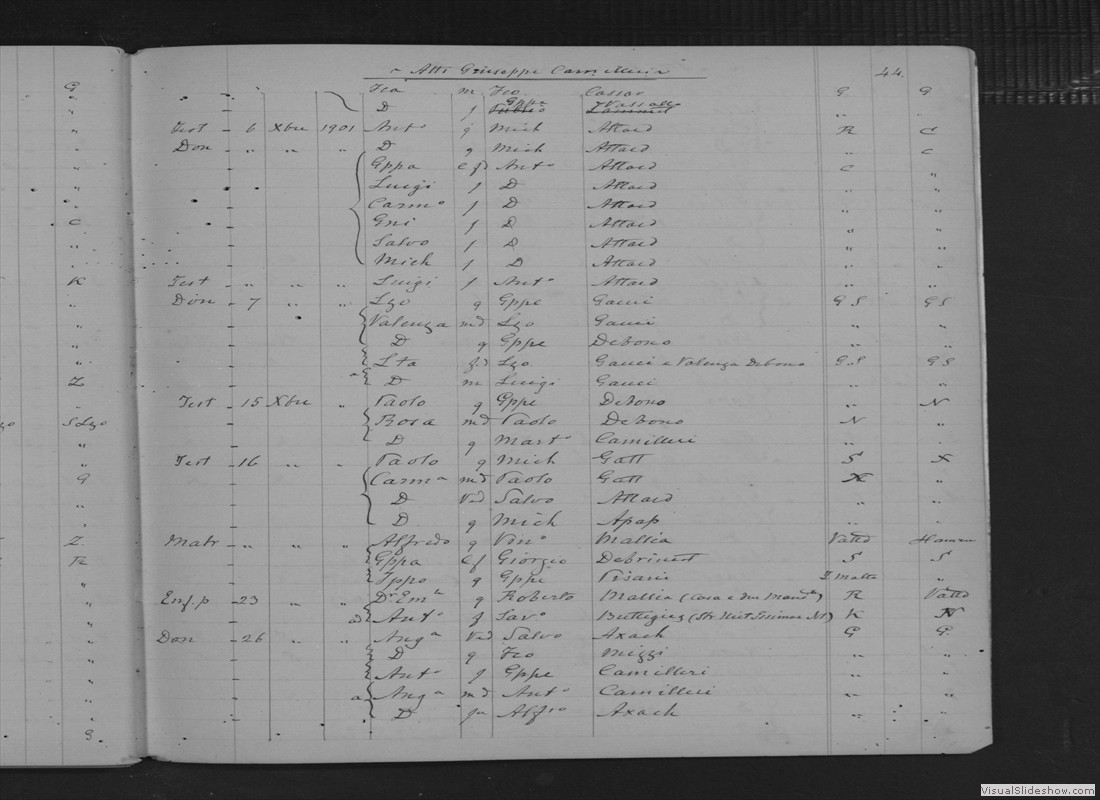 Atti Giuseppe Camilleri 44.
G Fca m Fco Cassar G G
" D f Gppe Vassallo "
" Test - 6 Xbre 1901 Anto g Mich Attard R C
" Don - " " " D g Mich Attard " C
" Gppa cfd Anto Attard C "
" Luigi f D Attard " "
" Carmo f D Attard " "
C Gni f D Attard " "
" Salvo f D Attard " "
Mich f D Attard " "
K Test - " " " Luigi f Anto Attard " "
" Don - 7 " " Lzo g Gppe Gauci GS GS
" Valenza md Lzo Gauci " "
" D g Gppe Debono " "
" Lta fd Lzo Gauci e Valenza Debono GS GS
Z D m Luigi Gauci " "
" Test - 15 Xbre " Paolo g Gppe Debono " N
S Lzo Rosa md Paolo Debono N "
" D g Marto Camilleri " "
" Test - 16 " " Paolo g Mich Gatt S X
G Carma md Paolo Gatt X "
" D Ved Salvo Attard " "
" D g Mich Apap " "
Z Matr - " " " Alfredo g Vino Mallia Vatta Hamrun
R Gppa cf Giorgio Debrincat S S
" Ippo g Gppe Pisani Z malta "
" Enf.p - 23 " " Dr Emle g Roberto Mallia (Casa e due Mand) R Vatta
" Anto f Savo Buttigieg K N
" Don - 26 " " Anga Ved Salvo Axach G G
" D g Fco Mizzi " "
" Anto f Gppe Camilleri " "
" Anga md Anto Camilleri " "
" D Alfio Axach " "
S
VisualSlideshow.com